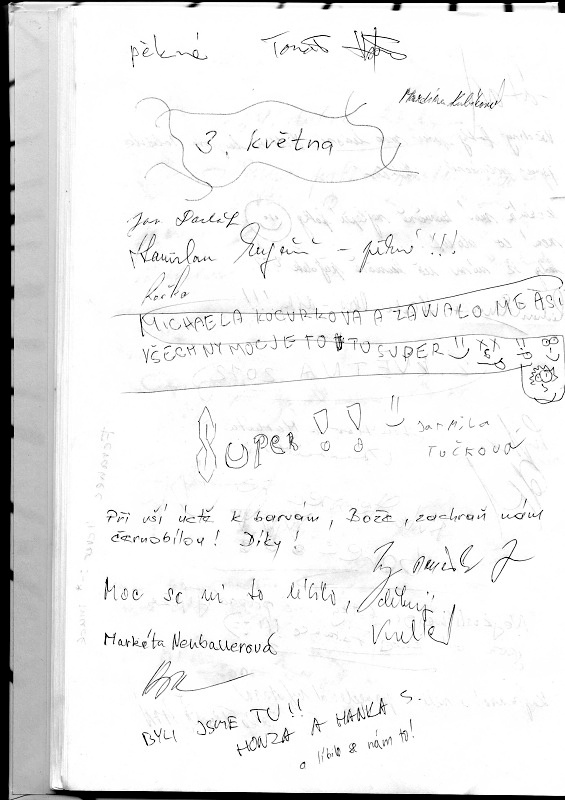 pěkné Tomáš
3. května
Jan
Stanislav – pěkné !!!
MICHAELA KOCURKOVA A ZAWALO MĚ ASI
VŠECHNY MOC JE TO TU SUPER
SUPER !! JARMILA
TUČKOVÁ
Při vší úctě k barvám, Bože, zachraň nám
černobílou! Díky!
Moc se mi to líbilo, děkuji
Markéta Neuballerová
BYLI JSME TU!!
HONZA A HANKA S.
a líbilo se nám to!